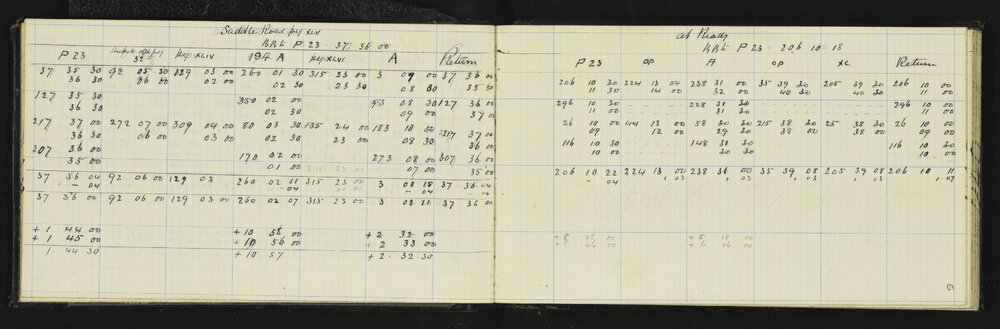 Saddle Road peg XLV
BBt P 23 - 37 36 00
P 23 52 Peg. XLIV 194 A Peg. XLVI A Return
37 35 30 92 05 30 129 03 00 260 01 30 315 23 00 3 09 00 37 36 00
36 30 06 00 02 00 02 30 23 30 08 30 35 30
127 35 30 350 02 00 93 08 30 127 36 00
36 30 02 30 09 00 37 00
217 37 00 272 07 00 309 04 00 80 03 30 135 24 00 183 10 00 217 37 00
36 30 06 00 03 00 02 30 23 00 08 30 36 30
307 36 00 170 02 00 273 08 00 307 36 00
35 00 01 00 07 00 35 00
37 36 04 92 06 00 129 03 260 02 11 315 23 00 3 08 18 37 36 04
- 04 - 04 - 04 04
37 36 00 92 06 00 129 03 00 260 02 07 315 23 00 3 08 37 36 00
+ 1 44 00 + 10 58 00 + 2 32 00
+ 1 45 00 + 10 56 00 + 2 33 00
1 44 30 + 10 57 + 2 32 30
at Ready
BBt P 23 - 206 10 18
P 23 OP A OP XC Return
206 10 30 224 13 00 238 31 00 35 39 30 205 39 30 206 10 00
11 30 14 00 32 00 40 30 40 30 11 00
296 10 30 328 31 30 296 10 00
11 00 31 30 11 00
26 10 00 44 13 00 58 30 30 215 38 30 25 38 30 26 10 00
09 12 00 29 30 38 00 38 00 09 00
116 10 30 148 31 30 116 10 30
10 00 30 30 10 00
206 10 22 224 13 00 238 31 00 35 39 08 205 39 08 206 10 11
- 04 + 03 + 03 + 03 + 03 + 07